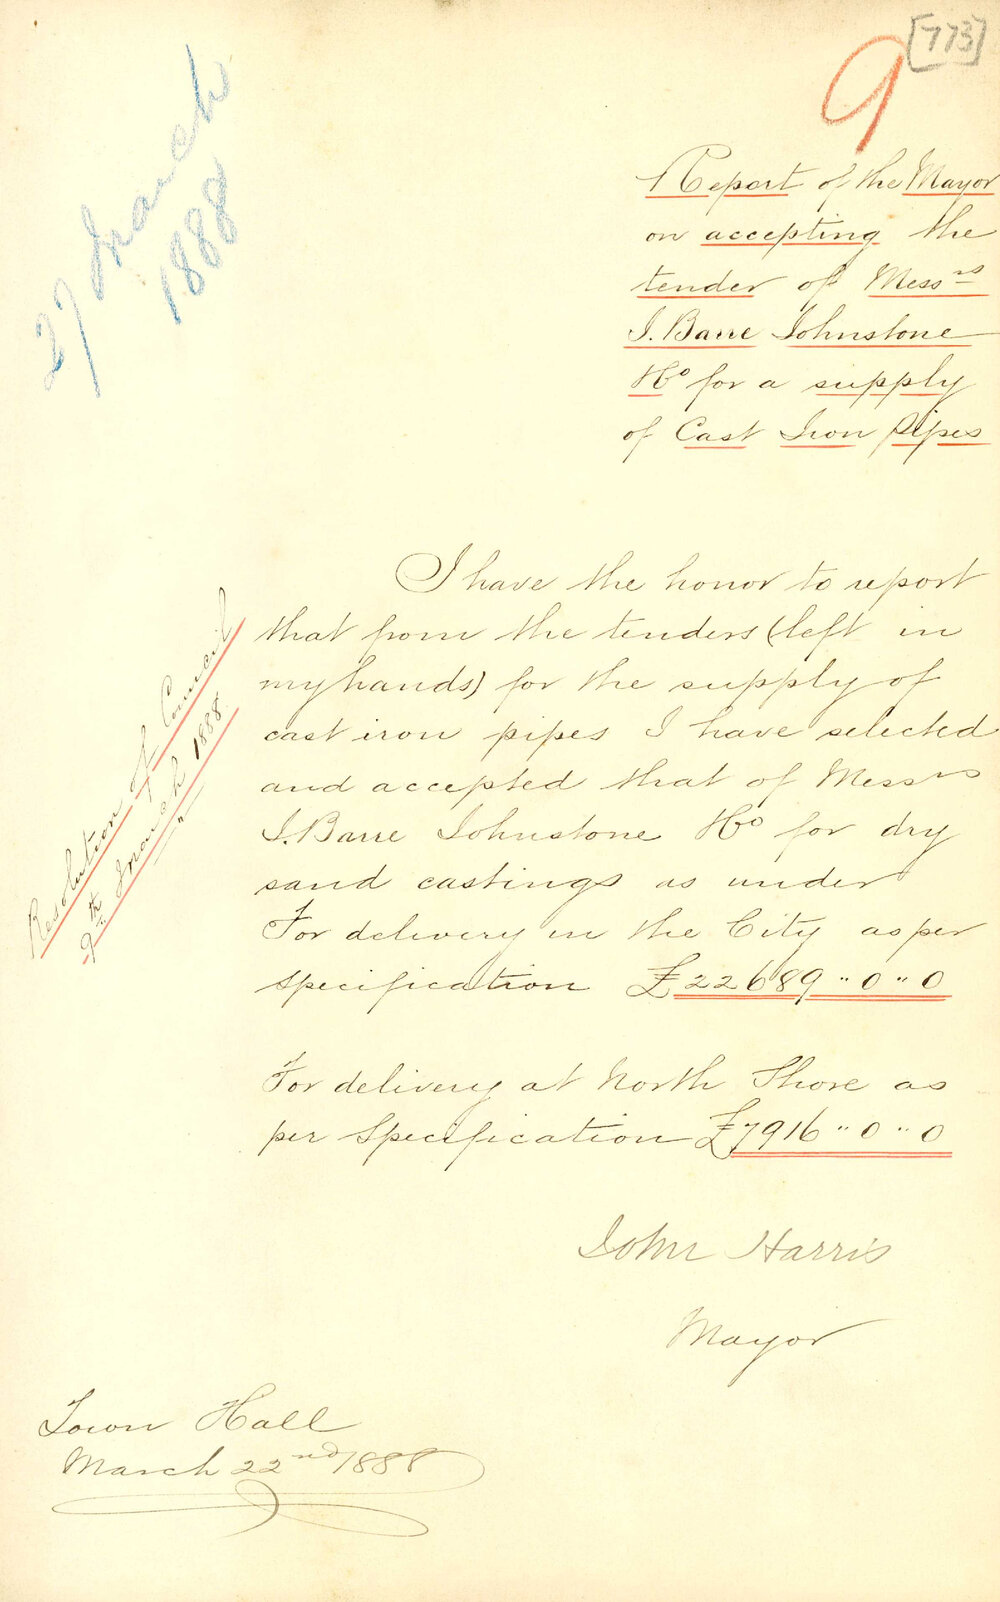 [773]
9
27 March
1888
Report of the Mayor
on accepting the
tender of Messrs
J. Barre Johnstone
& Co for a supply
of Cast Iron Pipes
I have the honor to report
that from the tenders (left in
my hands) for the supply of
cast iron pipes I have selected
and accepted that of Messrs
J. Barre Johnstone & Co for dry
sand castings as under
For delivery in the City as per
specification £22689 " 0 " 0
For delivery at North Shore as
per Specification £7916 " 0 " 0
Resolution of Council
9th March 1888.
John Harris
Mayor
Town Hall
March 22nd 1888